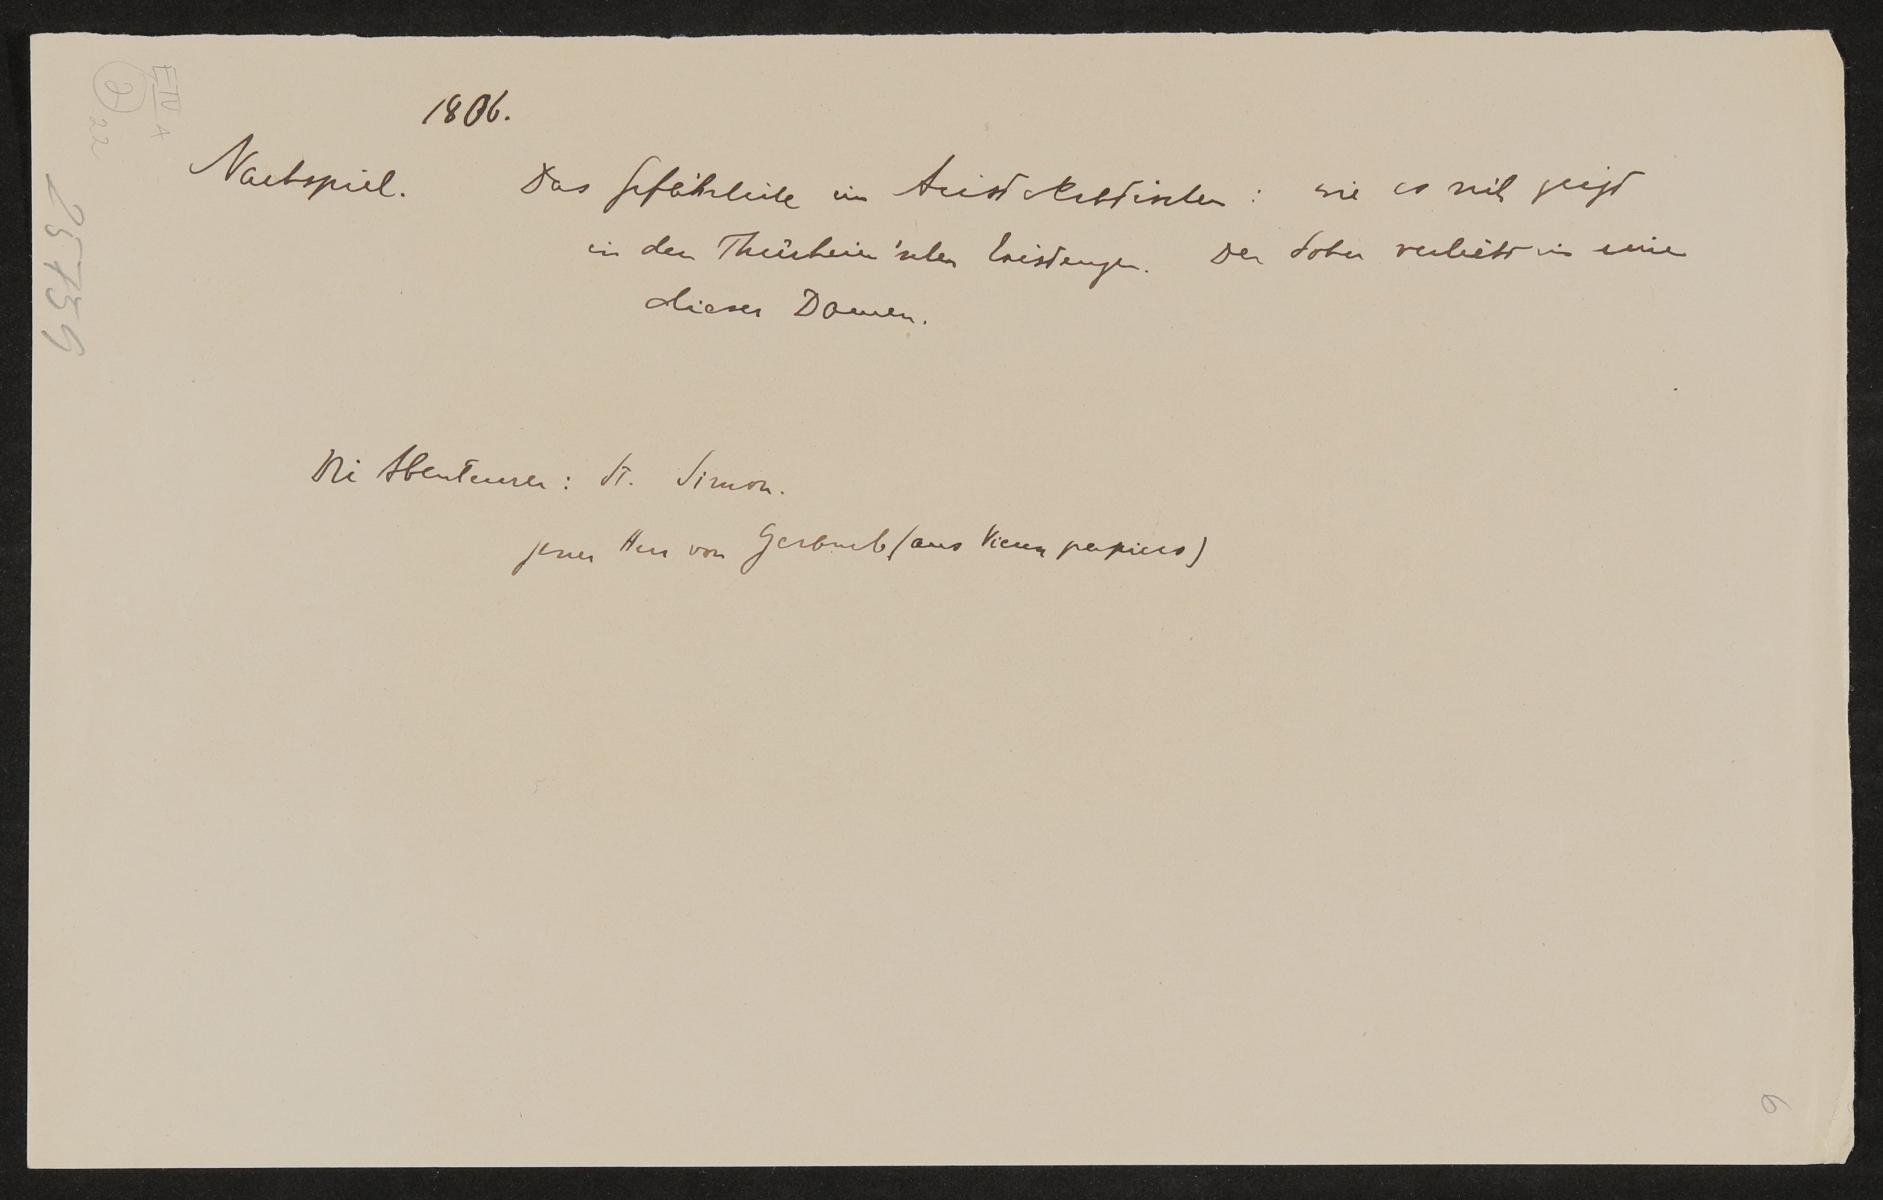 1806.
Nachspiel. Das Gefährliche im Aristokratischen: wie es sich zeigt
in den Thürheim'schen Existenzen. Der Sohn verliebt in eine
dieser Damen.
Die Abenteurer: St. Simon.
jener Herr von (aus Vieux papiers)
E IV A
2
22
25759
6